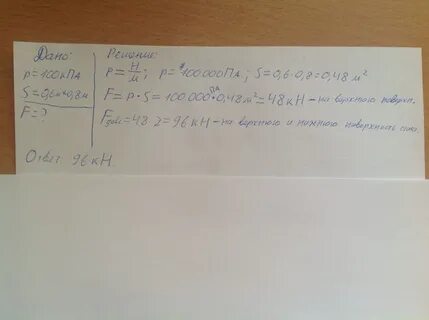 Дано:
p=100кПА
S=0,6м·0,8м
F=?
Решение:
p=Н/м; p=100.000ПА; S=0,6·0,8=0,48м²
F=p·S=100.000ПА·0,48м²=48кН-на верхнюю поверхн.
F =48·2=96кН-на верхнюю и нижнюю поверхность
Ответ 96кН.